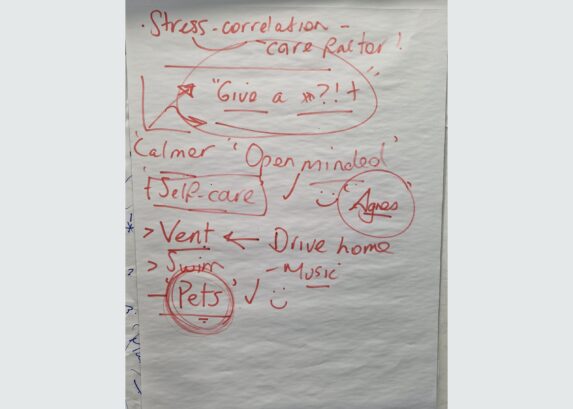 · Stress - correlation -
care factor!
"Give a *?!+"
'Calmer' 'Open minded'
+ Self-care ✓ Agnes
> Vent ← Drive home
> Swim - Music
- 'Pets' ✓